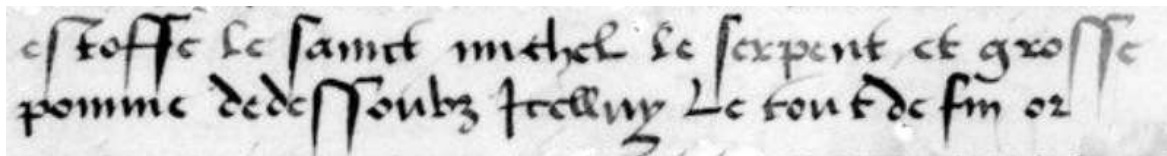 estoffe le sainct michel le serpent et grosse
pomme dedessoubz Icelluy Le tout de fin or